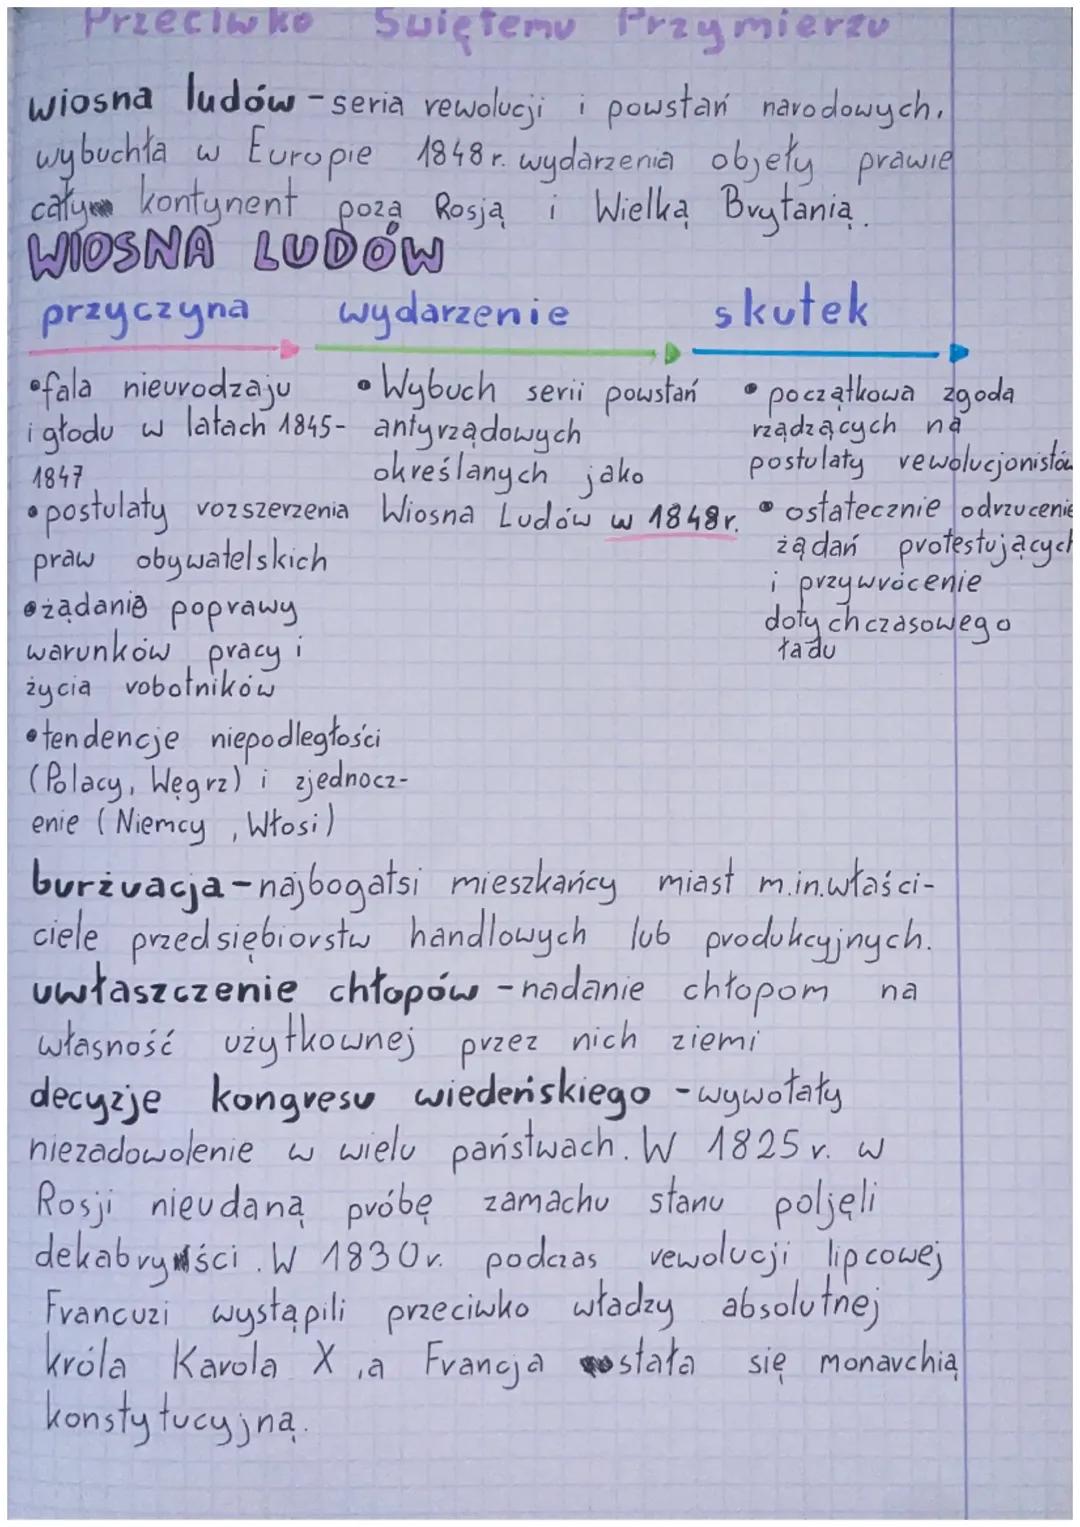 Przeciwko Świętemu Przymierzu
wiosna ludów - seria rewolucji i powstań narodowych.
wybuchła w Europie 1848 r. wydarzenia objęły prawie
cały kontynent poza Rosją i Wielką Brytanią.
WIOSNA LUDÓW
przyczyna wydarzenie skutek
•fala nieurodzaju
i głodu w latach 1845-
1847
•postulaty rozszerzenia
praw obywatelskich
•żądania poprawy
warunków pracy i
życia robotników
•tendencje niepodległości
(Polacy, Węgrz) i zjednocz-
enie (Niemcy, Włosi)
•Wybuch serii powstań
antyrządowych
określanych jako
Wiosna Ludów w 1848r.
• początkowa zgoda
rządzących na
postulaty rewolucjonistów
• ostatecznie odrzucenie
żądań protestujących
i przywrócenie
dotychczasowego
ładu
burżuacja - najbogatsi mieszkańcy miast m.in. właści-
ciele przedsiębiorstw handlowych lub produkcyjnych.
uwłaszczenie chłopów - nadanie chłopom na
własność użytkownej przez nich ziemi
decyzje kongresu wiedeńskiego - wywołały
niezadowolenie w wielu państwach. W 1825 r. w
Rosji nieudaną próbę zamachu stanu poljęli
dekabryści. W 1830r. podczas rewolucji lipcowej
Francuzi wystąpili przeciwko władzy absolutnej
króla Karola X, a Francja stała się monarchią
konstytucyjną.